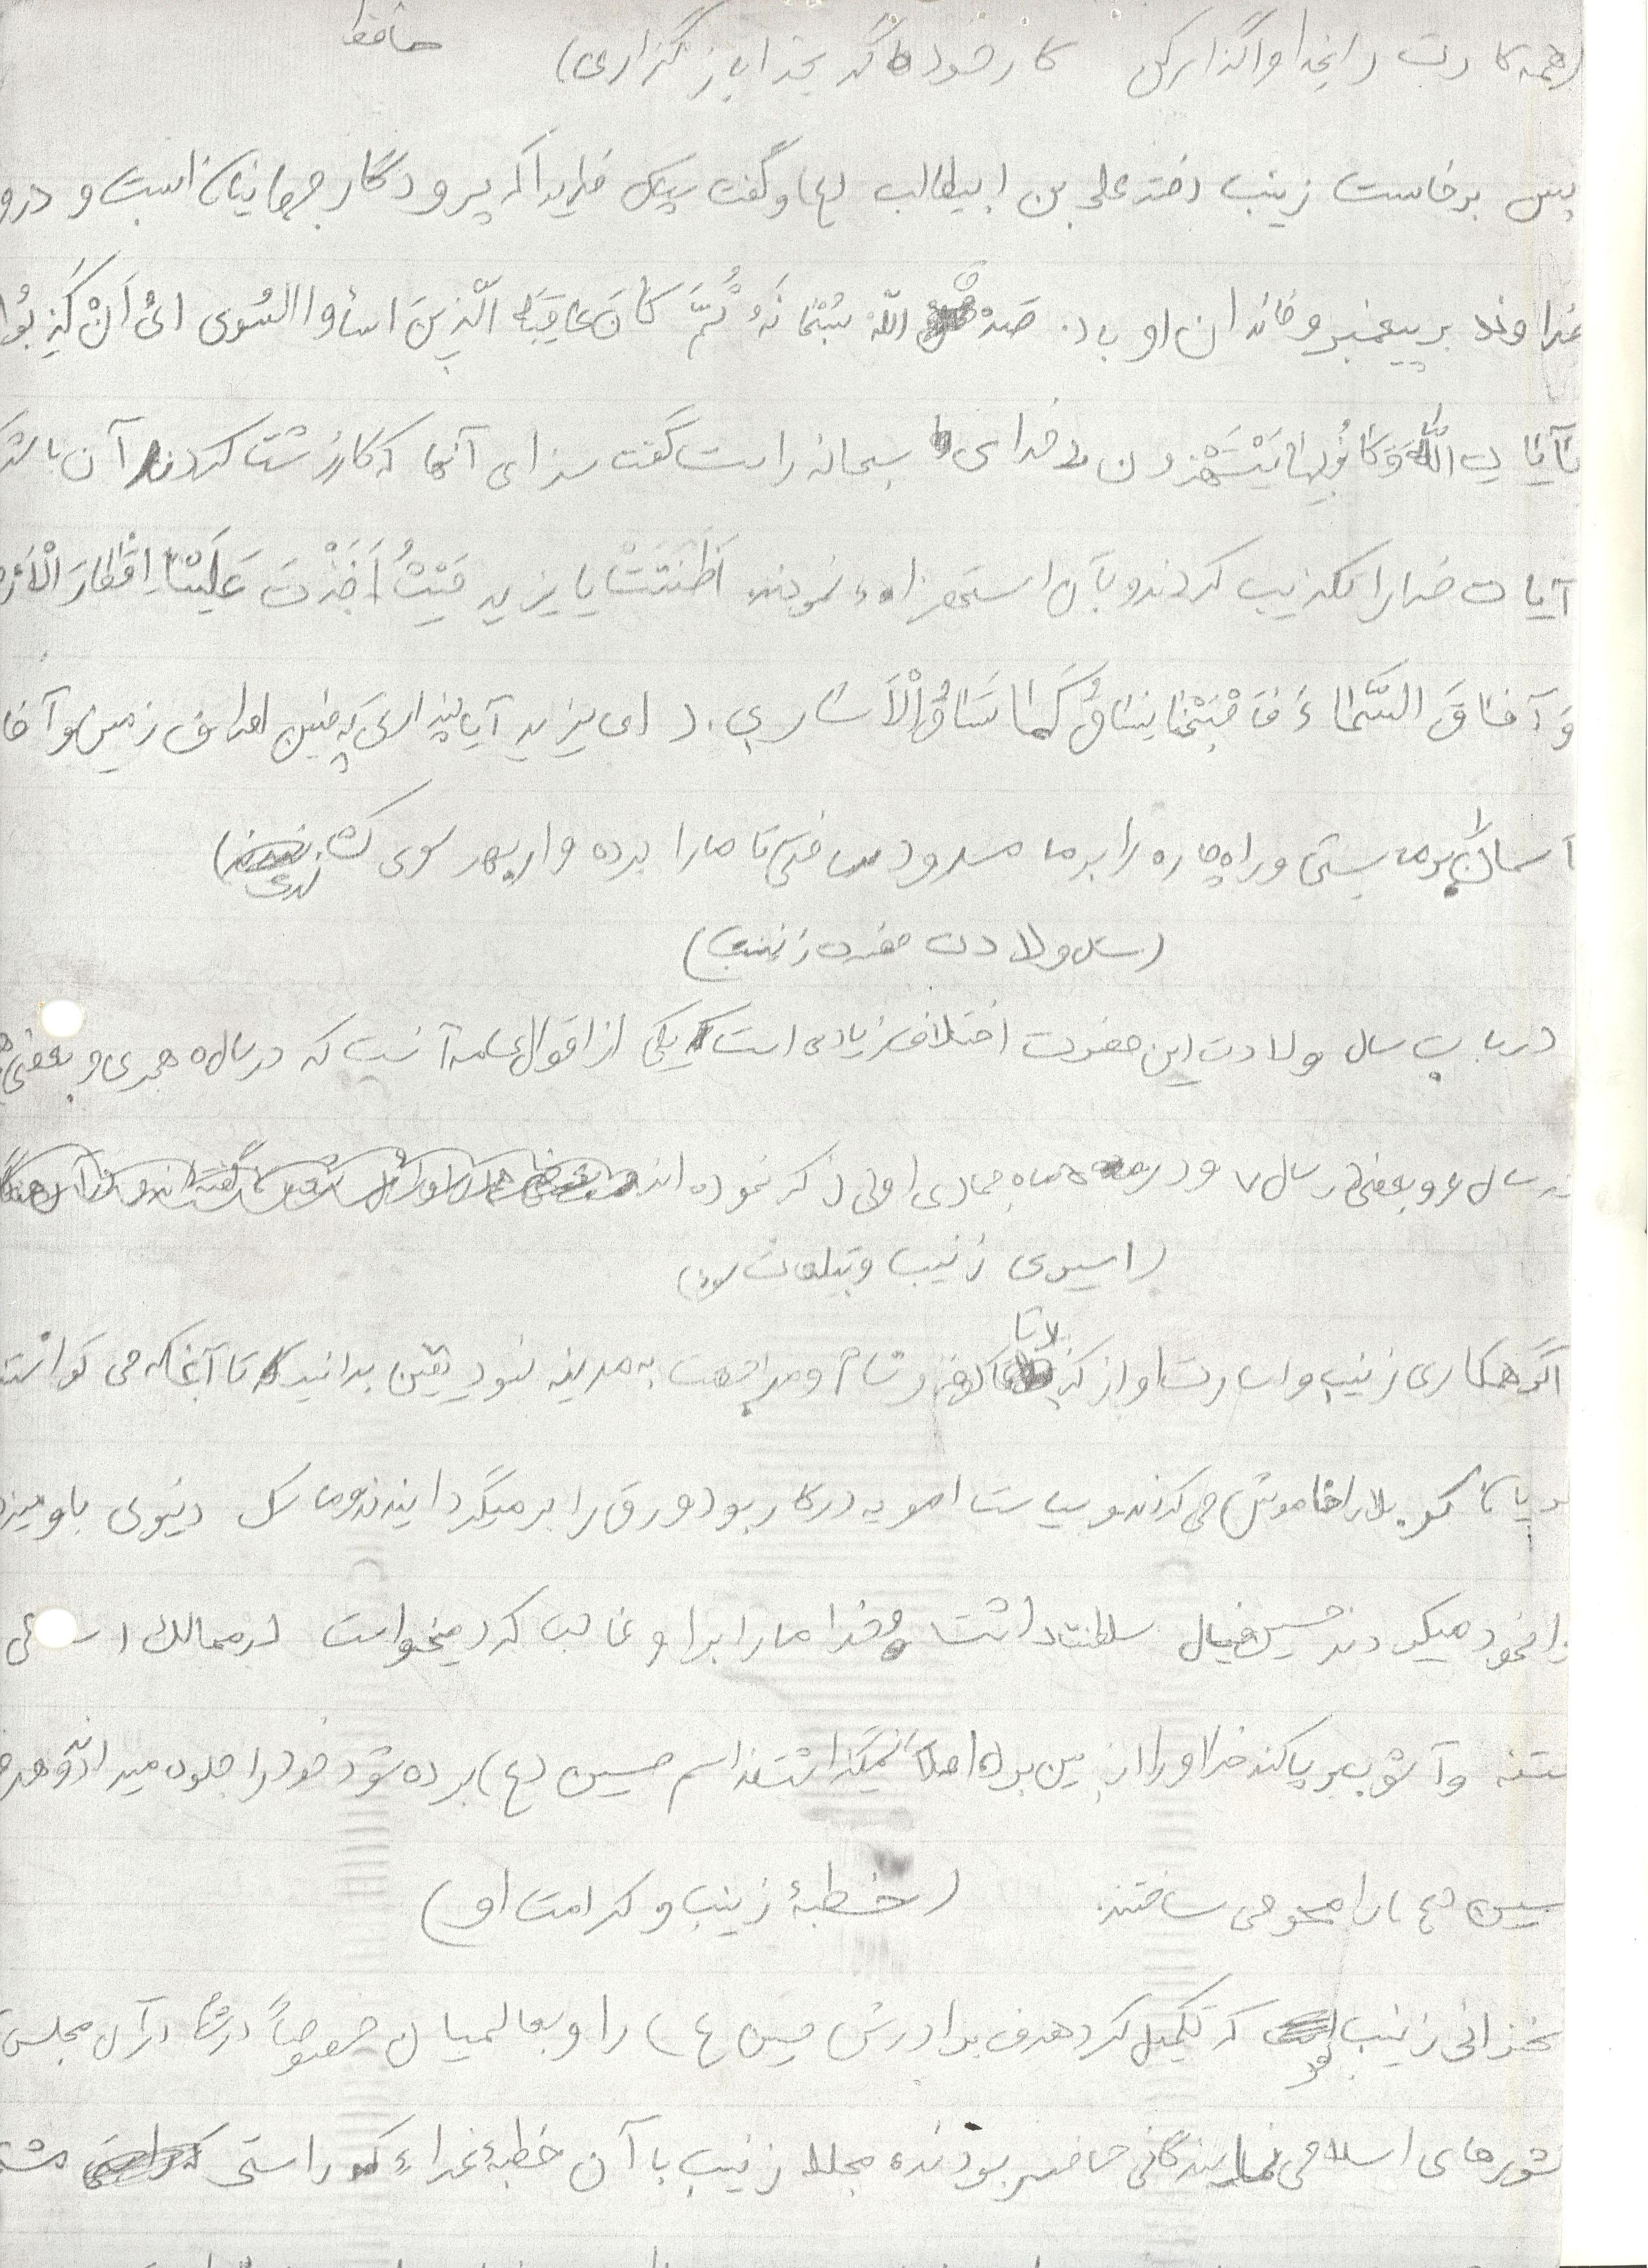 حافظ
کار خود گر بخدا باز گزاری)
پس برخاست زینب دختر علی بن ابیطالب (ع) و گفت سپاس خدایرا که پروردگار جهانیان است و درو
خداوند بر پیغمبر و خاندان او باد. صدق اللهُ سُبْحٰانَهُ ثُمَّ کٰانَ عٰاقِبَة الَّذِینَ اسٰاؤا السُوی انْ کَذِبُوا
بآیٰاتِ اللّٰه وَ کٰانُوا بِهٰا یَسْتَهْزِؤن (خدای سبحانه راست گفت سزای آنها که کار زشت کردند آن باشد
آیات خدا را تکذیب کردند و بآن استهزاء نمودند. اَظَنَنْتَ یا یزید حَیْثُ اَخَذْتَ عَلَیْنٰا اقْطارَ الْاَرْ
وَ آفٰاقَ السَّمٰاءَ فَاَصْبَحْنٰا نسٰاقُ کَمٰا تَسٰاقُ الْاَسٰاری. (ای یزید آیا پنداری که چنین اطراف زمین و آفا
آسمان را بر ما بستی و راه چاره را بر ما مسدود ساختی تا ما را برده وار بهر سوی کشاندی)
(سال ولادت حضرت زینب)
در باب سال ولادت این حضرت اختلاف زیادی است یکی از اقوال عامه آنست که در سال ۵ هجری و بعضی
سال ۶ و بعضی در سال ۷ و در ماه جمادی اولی ذکر نموده اند
(اسیری زینب و تبلیغات سوء)
اگر همکاری زینب و اسارت او از کربلا تا کوفه و شام و مراجعت به مدینه نبود یقین بدانید تا آنجا که می توانست
کربلا را خاموش می کردند و سیاست امویه در کار بود ورق را بر میگردانیدند و ماسک دینوی باو میز
خود میکردند حسین خیال سلطنت داشت و خدا ما را بر او غالب کرد میخواست در ممالک اسلامی
و آشوب بر پا کند خدا او را از بین برد اصلاً نمیگذاشتند اسم حسین (ع) برده شود خود را جلوه میدادند و هدف
را محو می ساختند. (خطبهٔ زینب و کرامت او)
زینب بود که تکمیل کرد هدف برادرش حسین (ع) را و بعالمیان خصوصاً در شام در آن مجلس
شورهای اسلامی نمایندگانی حاضر بودند مجللا زینب با آن خطبهٔ غراء که براستی